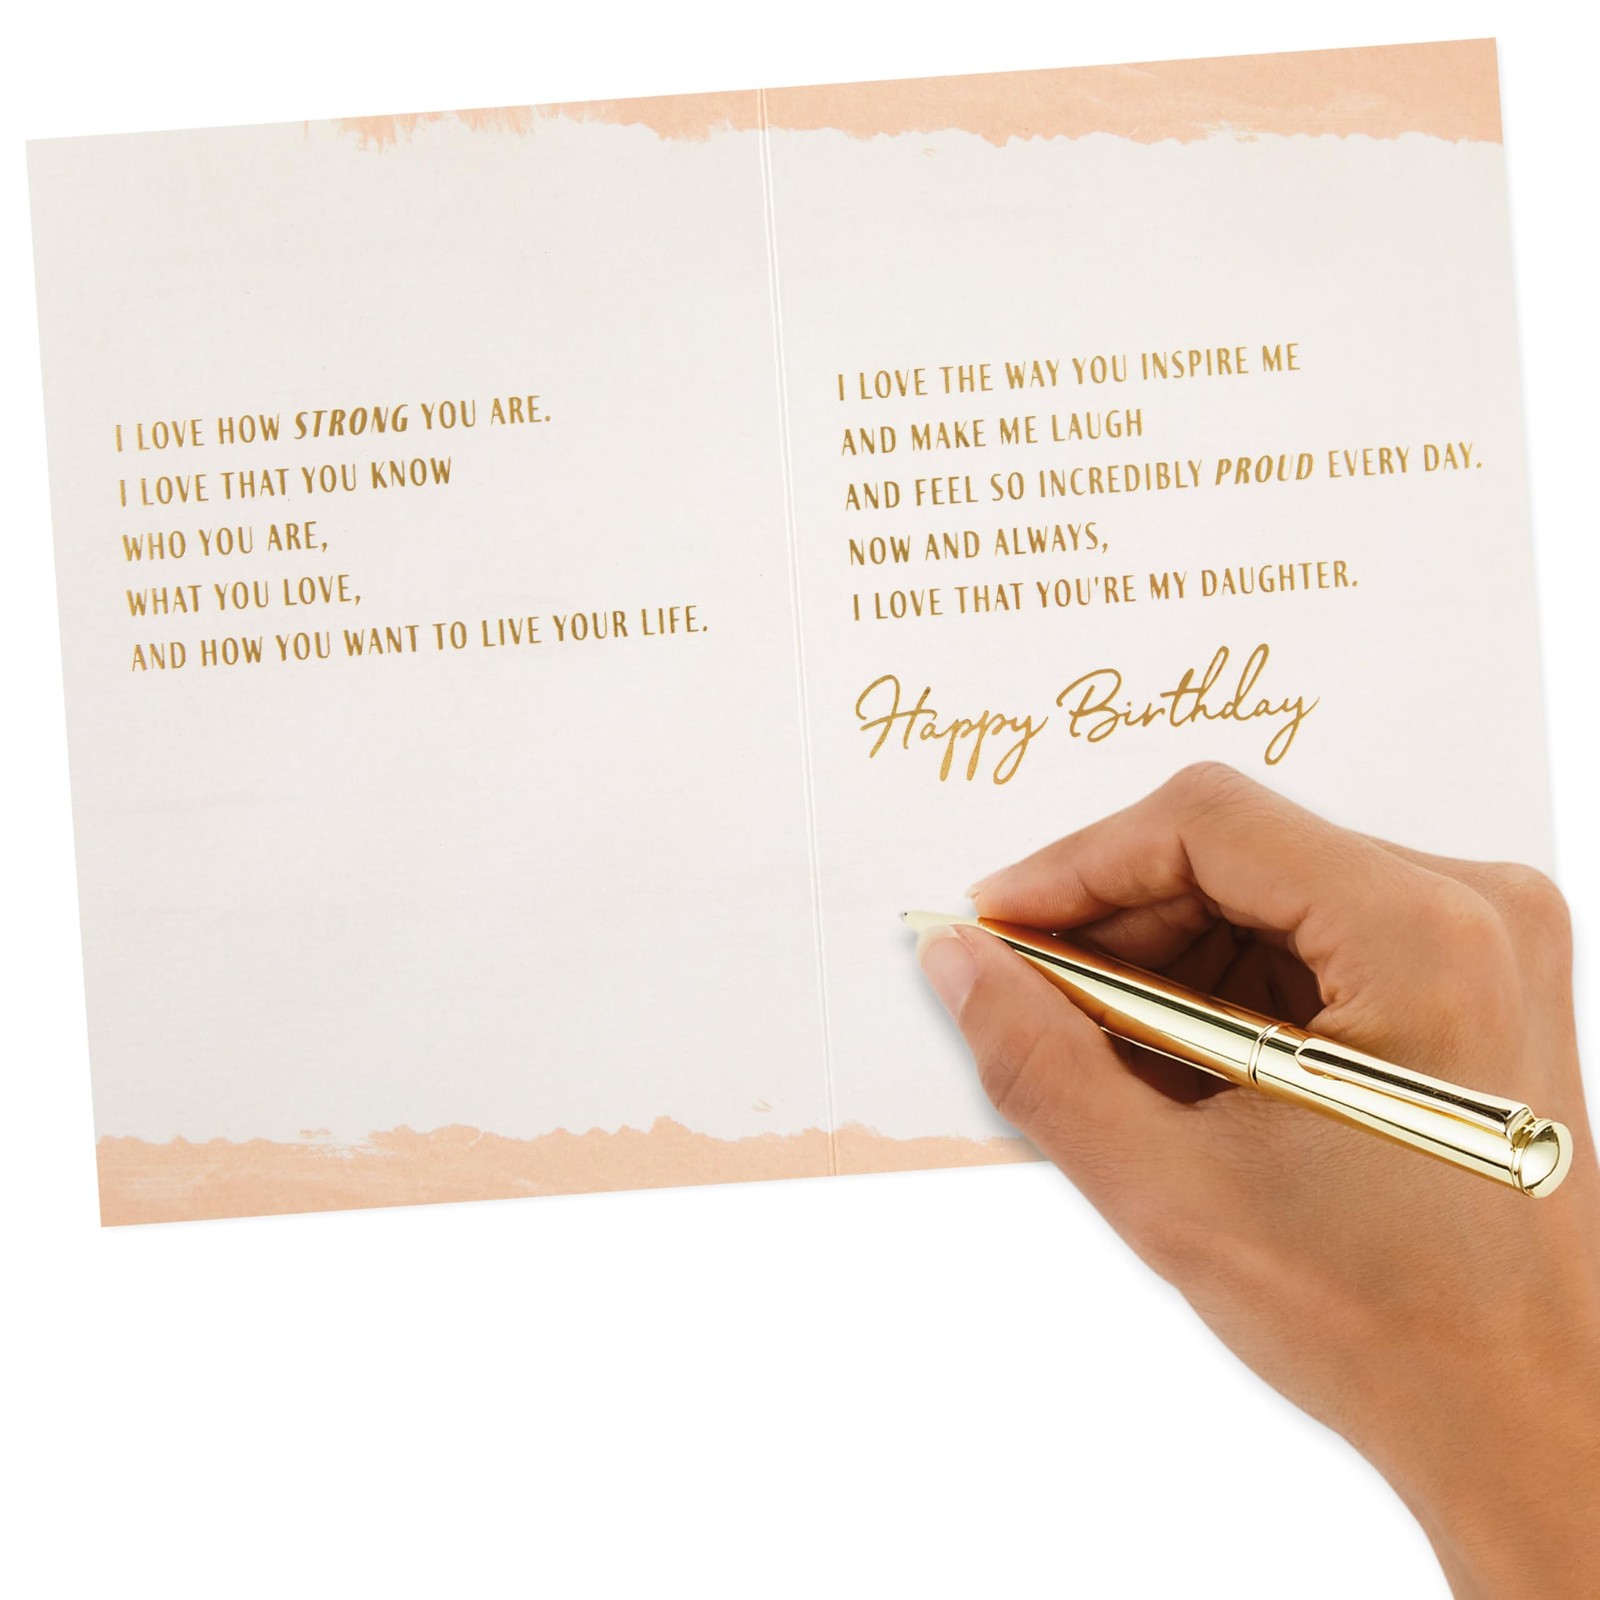 I LOVE HOW STRONG YOU ARE.
I LOVE THAT YOU KNOW
WHO YOU ARE,
WHAT YOU LOVE,
AND HOW YOU WANT TO LIVE YOUR LIFE.
I LOVE THE WAY YOU INSPIRE ME
AND MAKE ME LAUGH
AND FEEL SO INCREDIBLY PROUD EVERY DAY.
NOW AND ALWAYS,
I LOVE THAT YOU'RE MY DAUGHTER.
Happy Birthday